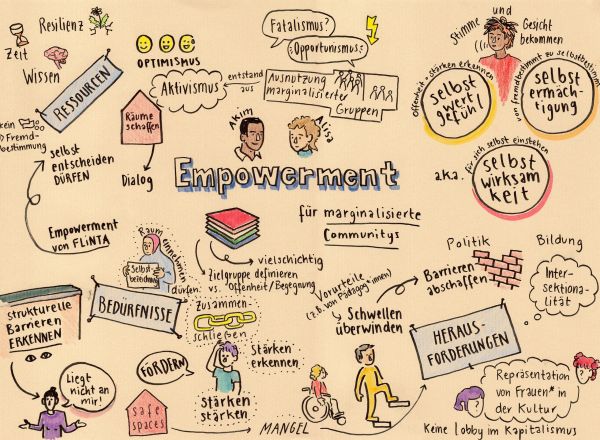 Resilienz
Zeit
Wissen
RESSOURCEN
kein
Fremd-
bestimmung
selbst
entscheiden
DÜRFEN
Räume
schaffen
Dialog
OPTIMISMUS
Aktivismus
entstand
aus
Fatalismus?
Opportunismus?
Ausnutzung
marginalisierter
Gruppen
Stimme und Gesicht
bekommen
Offenheit + Stärken erkennen
selbst
wert
gefühl
von fremdbestimmt zu selbstbestimmt
selbst
ermäch-
tigung
a.k.a.
für sich selbst einstehen
selbst
wirksam
keit
Akim
Alisa
Empowerment
für marginalisierte
Communitys
Empowerment
von FLINTA
Raum einnehmen
dürfen
Selbst-
bezeichnung
BEDÜRFNISSE
vielschichtig
Zielgruppe definieren
vs. Offenheit/Begegnung
strukturelle
Barrieren
ERKENNEN
Liegt
nicht an
mir!
Zusammen-
schließen
FÖRDERN
safe
spaces
Stärken
erkennen
Stärken
stärken
MANGEL
Vorurteile
(z.B. von Pädagog*innen)
Schwellen
überwinden
Politik
Barrieren
abschaffen
Bildung
Inter-
sektiona-
lität
HERAUS-
FORDERUNGEN
Repräsentation
von Frauen*in
der Kultur
Keine Lobby im Kapitalismus